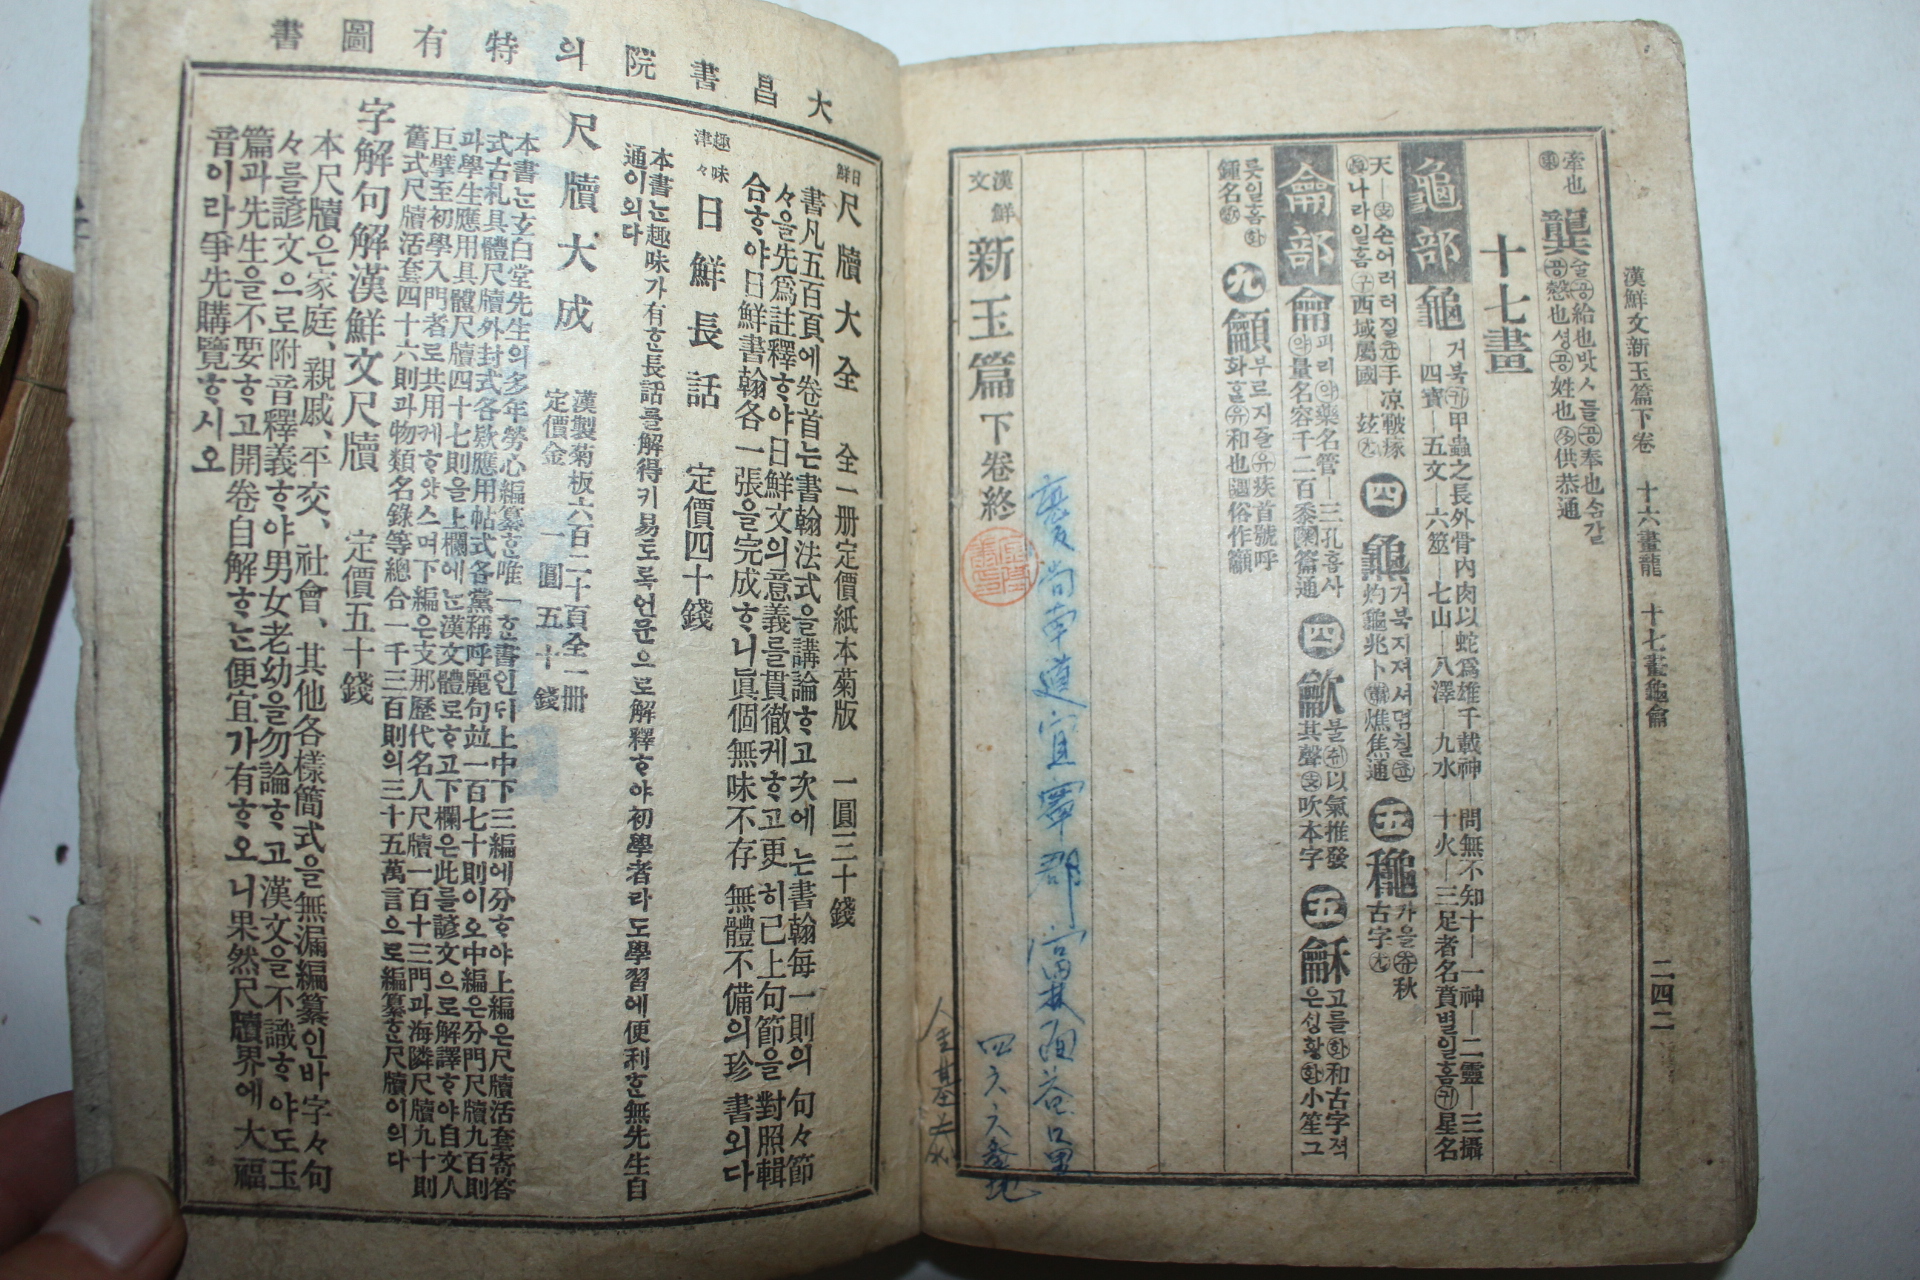 漢鮮文新玉篇下卷 十六畫龍 十七畫龜龠 二四二
牽也
龔
給也
慤也
奉也
姓也
供恭通
十七畫
龜部
龜
거북
甲蟲之長外骨內肉以蛇爲雄千載神—問無不知十—一神—二靈—三攝
—四寶—五文—六筮—七山—八澤—九水—十火—三足者名賁별일홈
星名
天—
손어러터질
手凍皸瘃
나라일홈
西域屬國—玆
四
거북지져셔덤칠
灼龜兆卜
燋焦通
五
龝
가을
秋
古字
龠部
龠
量名容千二百黍
藥名管—三孔
篇通
四
龡
불
以氣推發
其聲
吹本字
五
龢
고를
和古字
小笙
鍾名
九
龥
부르지즐
疾首號呼
和也
俗作籲
漢鮮文 新玉篇下卷終
慶尙南道宜寧郡富林面
大昌書院의特有圖書
日鮮 尺牘大全 全一册定價紙本菊版 一圓三十錢
書凡五百頁에卷首는書翰法式을講論ᄒᆞ고次에는書翰每一則의句々節
々을先爲註釋ᄒᆞ야日鮮文의意義를貫徹케ᄒᆞ고更히已上句節을對照輯
合ᄒᆞ야日鮮書翰各一張을完成ᄒᆞ니眞個無味不存無體不備의珍書외다
趣味津々 日鮮長話 定價四十錢
本書는趣味가有ᄒᆞᆫ長話를解得키易도록언문으로解釋ᄒᆞ야初學者라도學習에便利ᄒᆞᆫ無先生自
通이외다
尺牘大成 漢製菊板六百二十頁全一册 定價金一圓五十錢
本書는玄白堂先生의多年勞心編纂ᄒᆞᆫ唯一ᄒᆞᆫ書인ᄃᆡ上中下三編에分ᄒᆞ야上編은尺牘活套寄答
式古札具體尺牘外封式各欵應用帖式各黨稱呼麗句並一百七十則이오中編은分門尺牘九百則
과學生應用具體尺牘四十七則을上欄에는漢文體로ᄒᆞ고下欄은此를諺文으로解譯ᄒᆞ야自文人
巨擘至初學入門者로共用케ᄒᆞ얏스며下編은支那歷代名人尺牘一百十三門과海隣尺牘九十則
舊式尺牘活套四十六則과物類名錄等總合一千三百則의三十五萬言으로編纂ᄒᆞᆫ尺牘이외다
字解句解漢鮮文尺牘 定價五十錢
本尺牘은家庭、親戚、平交、社會、其他各樣簡式을無漏編纂인바字々句
々를諺文으로附音釋義ᄒᆞ야男女老幼을勿論ᄒᆞ고漢文을不識ᄒᆞ야도玉
篇과先生을不要ᄒᆞ고開卷自解ᄒᆞ는便宜가有ᄒᆞ오니果然尺牘界에大福
音이라爭先購覽ᄒᆞ시오